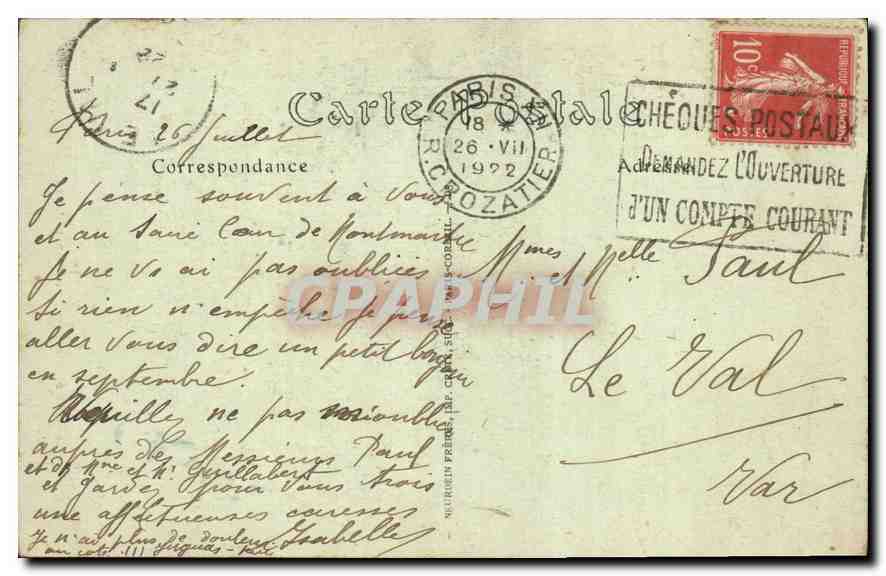 Carte Postale
Correspondance
Adresse
PARIS XII
18 *
26 · VII
1922
R. CROZATIER
10c
REPUBLIQUE FRANÇAISE
POSTES
CHEQUES POSTAUX
DEMANDEZ L'OUVERTURE
d'UN COMPTE COURANT
Paris 26 Juillet
Je pense souvent à Vous
et au Sacré Cœur de Montmartre
Je ne Vs ai pas oubliées
Si rien n'empêche je pense
aller vous dire un petit bonjour
en septembre.
Veuillez ne pas m'oublier
auprès des Messieurs Paul
et de Mme et Mr Guillabert
et gardez pour vous trois
une affectueuses caresses
Isabelle
Je n'ai plus de douleur
au coté !!!
Mmes et Melle Paul
Le Val
Var
NEURDEIN FRÈRES, IMP. CRÉTÉ, SUCC. PARIS-CORBEIL
CPAPHIL